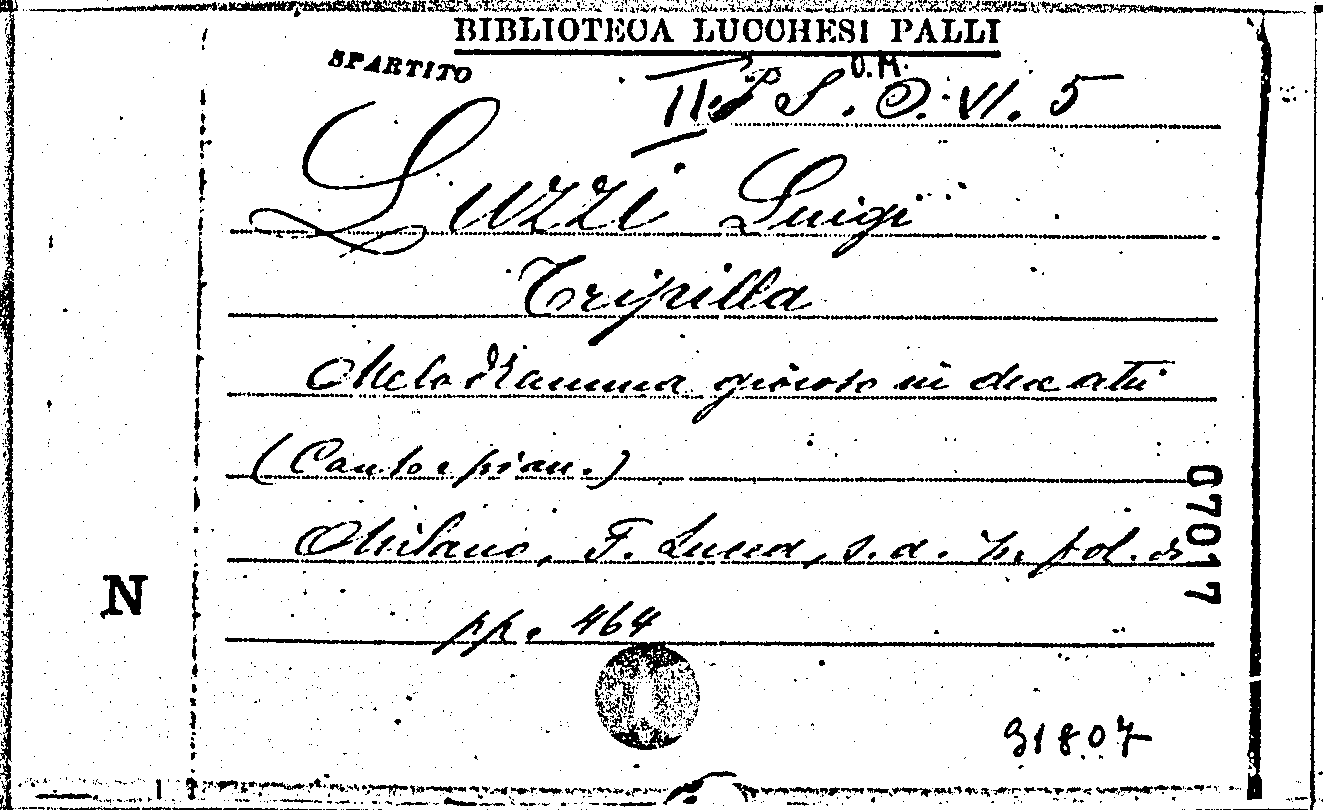 BIBLIOTECA LUCCHESI PALLI
SPARTITO
O.M.
II. S. O. VI. 5
Luzzi Luigi
Tripilla
Melodramma giocoso in due atti
(Canto e pian.)
Milano, F. Lucca, s.d. in fol. di
pp. 464
N
07017
31807